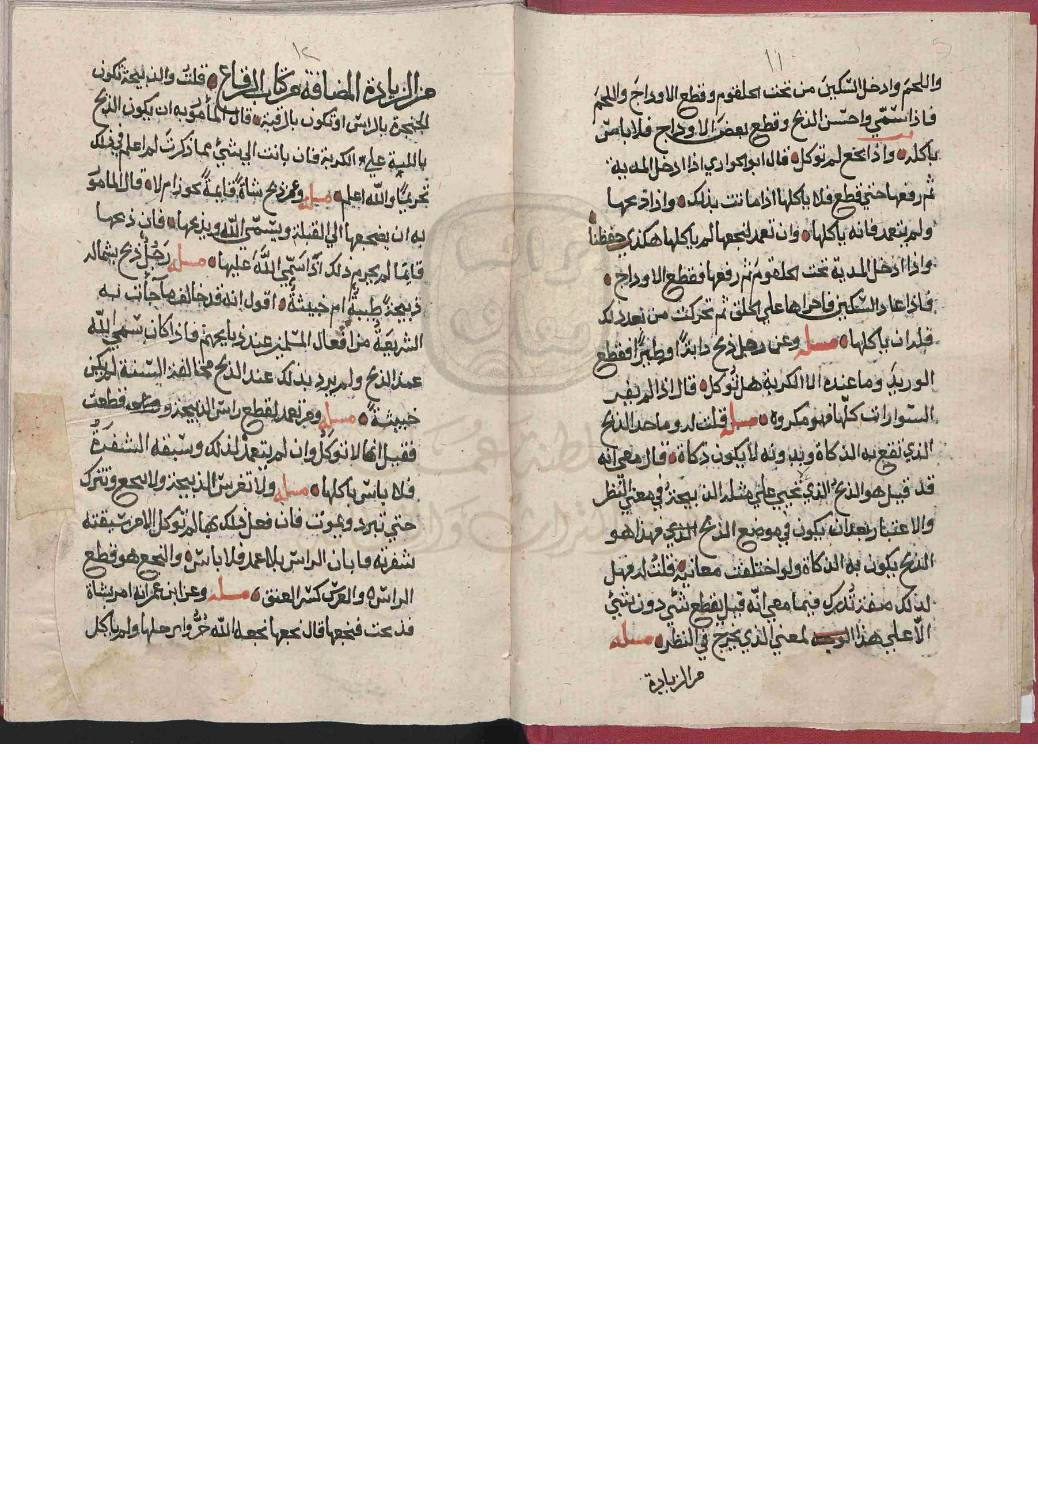 ١١
واللحم وادخل السكين من تحت الحلقوم وقطع الاوداج واللحم
فاذا سمي واحسن الذبح وقطع بعض الاوداج فلا باس
باكله واذا نخع لم توكل قال ابو الحواري اذا ادخل المدية
ثم رفعها حتي قطع فلا ياكلها اذا ماتت بذلك واذا ذبحها
ولم يتعمد فانه ياكلها وان تعمد لنخعها لم ياكلها هكذي حفظنا
واذا ادخل المدية تحت الحلقوم ثم رفعها فقطع الاوداج
فاذا عاد السكين فاجراها علي الحلق ثم تحركت من بعد ذلك
فله ان ياكلها مسله وعن رجل ذبح دابة او طيرا فقطع
الوريد وما عنده الا الكربة هل توكل قال اذا لم يفر
السوارات كلها فهو مكروه مسله قلت له وما حد الذبح
الذي تقع به الذكاة وبدونه لا يكون ذكاة قال معي انه
قد قيل هو الذبح الذي تحيي علي مثله الذبيحة في معني النظر
والاعتبار بعد ان يكون في موضع الذبح الذي مهذا هو
الذبح يكون به الذكاة ولو اختلفت معانيه قلت له فهل
لذلك صفة تدرك فيما معي انه قيل بقطع شي دون شي
الا علي هذا لمعني الذي يخرج في النظر مسله
من الزيادة
١٢
من الزيادة المضافة من كتاب الرقاع قلت والذبيحة تكون
الحنجرة بالراس او تكون بالرقبة قال المأمور به ان يكون الذبح
باللبة علي الكربة فان بانت الي شي مما ذكرت لم اعلم في ذلك
تحريما والله اعلم مسله وعمن ذبح شاة قايمة يجوز ام لا قال المامو
به ان يضجعها الي القبلة ويسمي الله ويذبحها فان ذبحها
قايما لم يحرم ذلك اذا سمي الله عليها مسله رجل ذبح بشماله
ذبيحة طيبة ام خبيثة اقول انه قد خالف ما جأت به
الشريعة من افعال المسلمين عند ذبايحهم فاذا كان سمي الله
عند الذبح ولم يرد بذلك عند الذبح مخالفة السنة لم يكن
خبيثة مسله ومن تعمد لقطع راس الذبيحة فقطعت
فقيل انها لا توكل وان لم يتعمد لذلك وسبقه الشفرة
فلا باس باكلها مسله ولا تفرس الذبيحة ولا ينخع وتترك
حتي تبرد ويموت فان فعل ذلك بها لم توكل الا من سبقته
شفرته فابان الراس بلا عمد فلا باس والنخع هو قطع
الراس والفرس كسر العنق مسله وعن ابن عمر انه امر بشاة
فذبحت فنخعها قال نخعها نخعه الله ولم ياكل